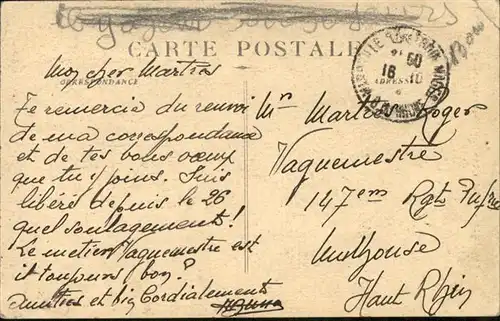 CARTE POSTALE
Mon cher Martres
CORRESPONDANCE
ADRESSE
Te remercie du renvoi
de ma correspondance
et de tes bons voeux
que tu y joins. Suis
libéré depuis le 26
quel soulagement!
Le metier Vaguemestre est
il toujours bon?
Amitiés et bien Cordialements
Mr Martres Roger
Vaguemestre
147em Rgt Inf
Mulhouse
Haut Rhin